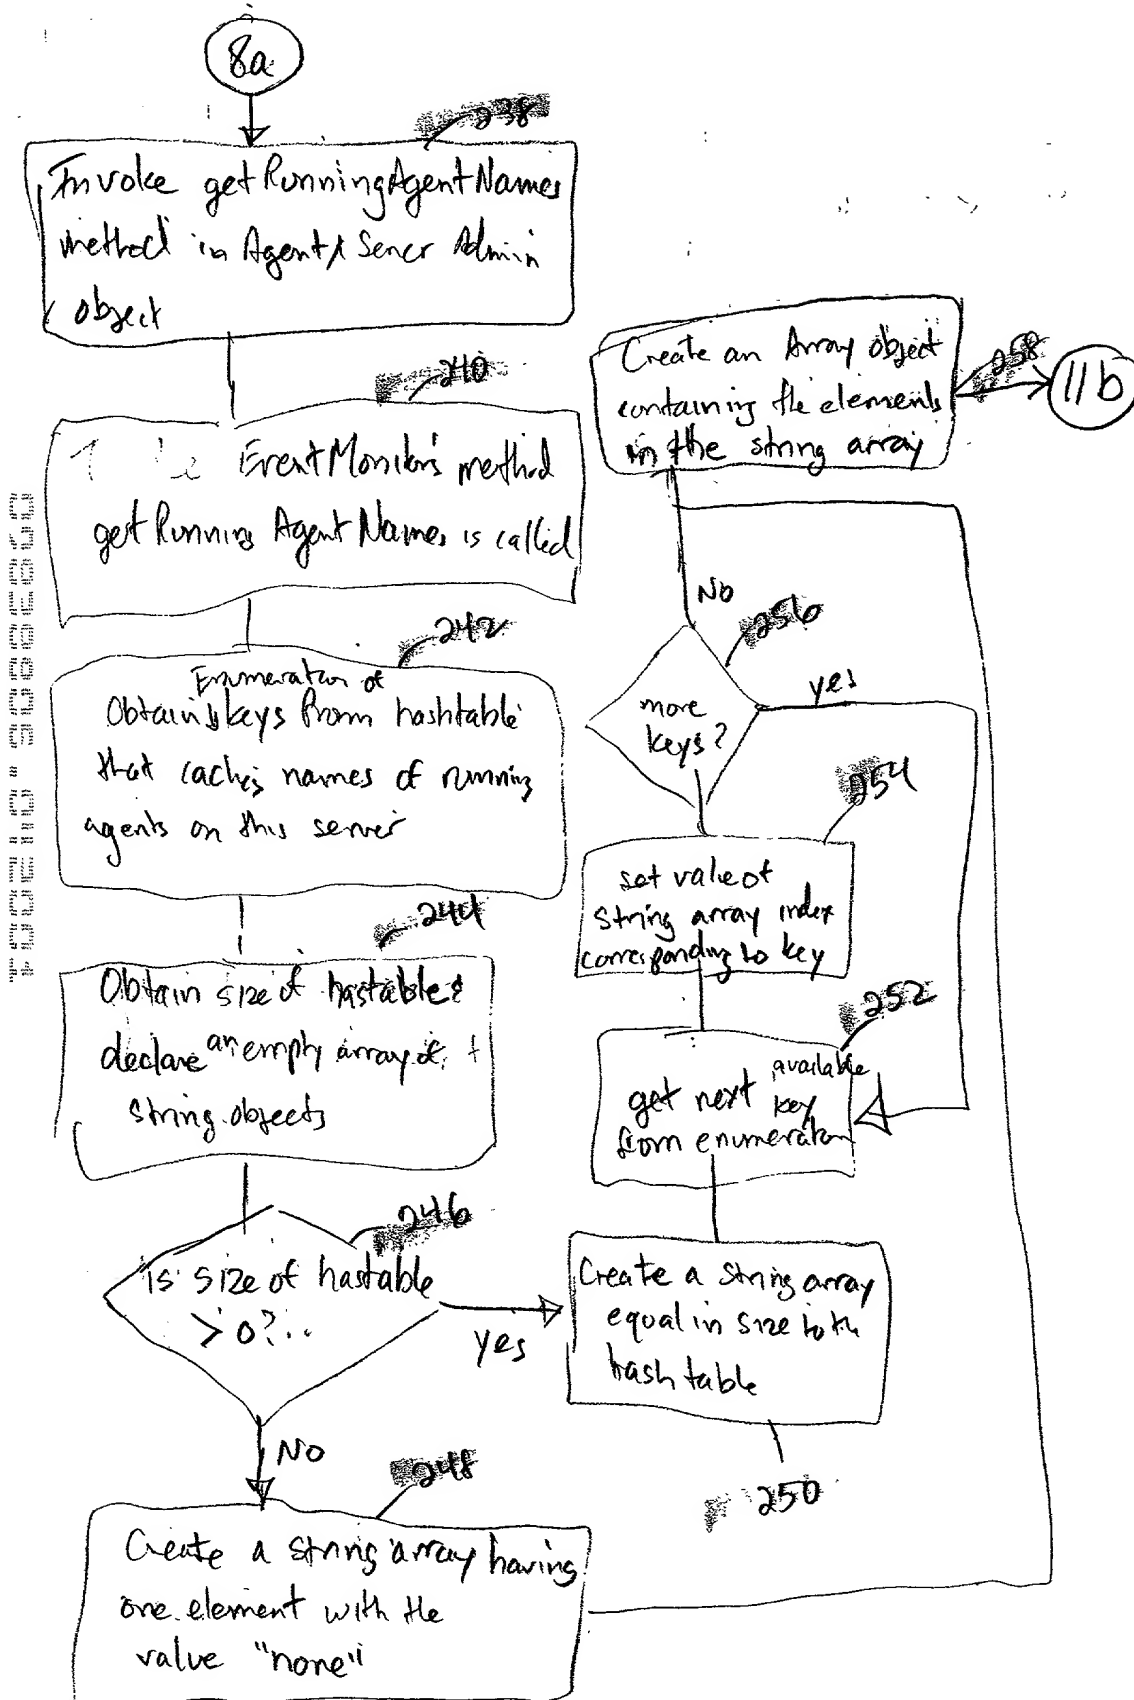 8a
238
Invoke getRunningAgentNames
method in Agent Server Admin
object
240
EventMonitor's method
getRunning Agent Names is called
242
Enumeration of
Obtain keys from hashtable
that caches names of running
agents on this server
244
Obtain size of hastable &
declare an empty array of
String objects
246
is size of hastable
> 0?
yes
No
248
Create a String array having
one element with the
value "none"
Create an Array object
containing the elements
in the string array
258
11b
No
256
more
keys?
yes
254
set value of
String array index
corresponding to key
252
get next available
key
from enumeration
Create a String array
equal in size to the
hash table
250